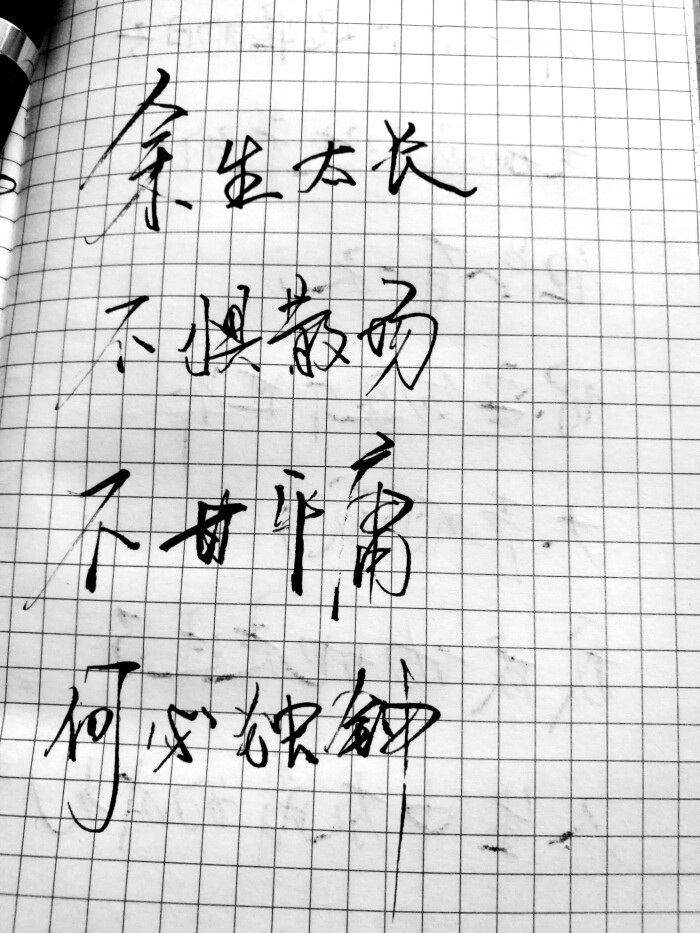 余生太长
不惧散场
不甘平庸
何必独钟